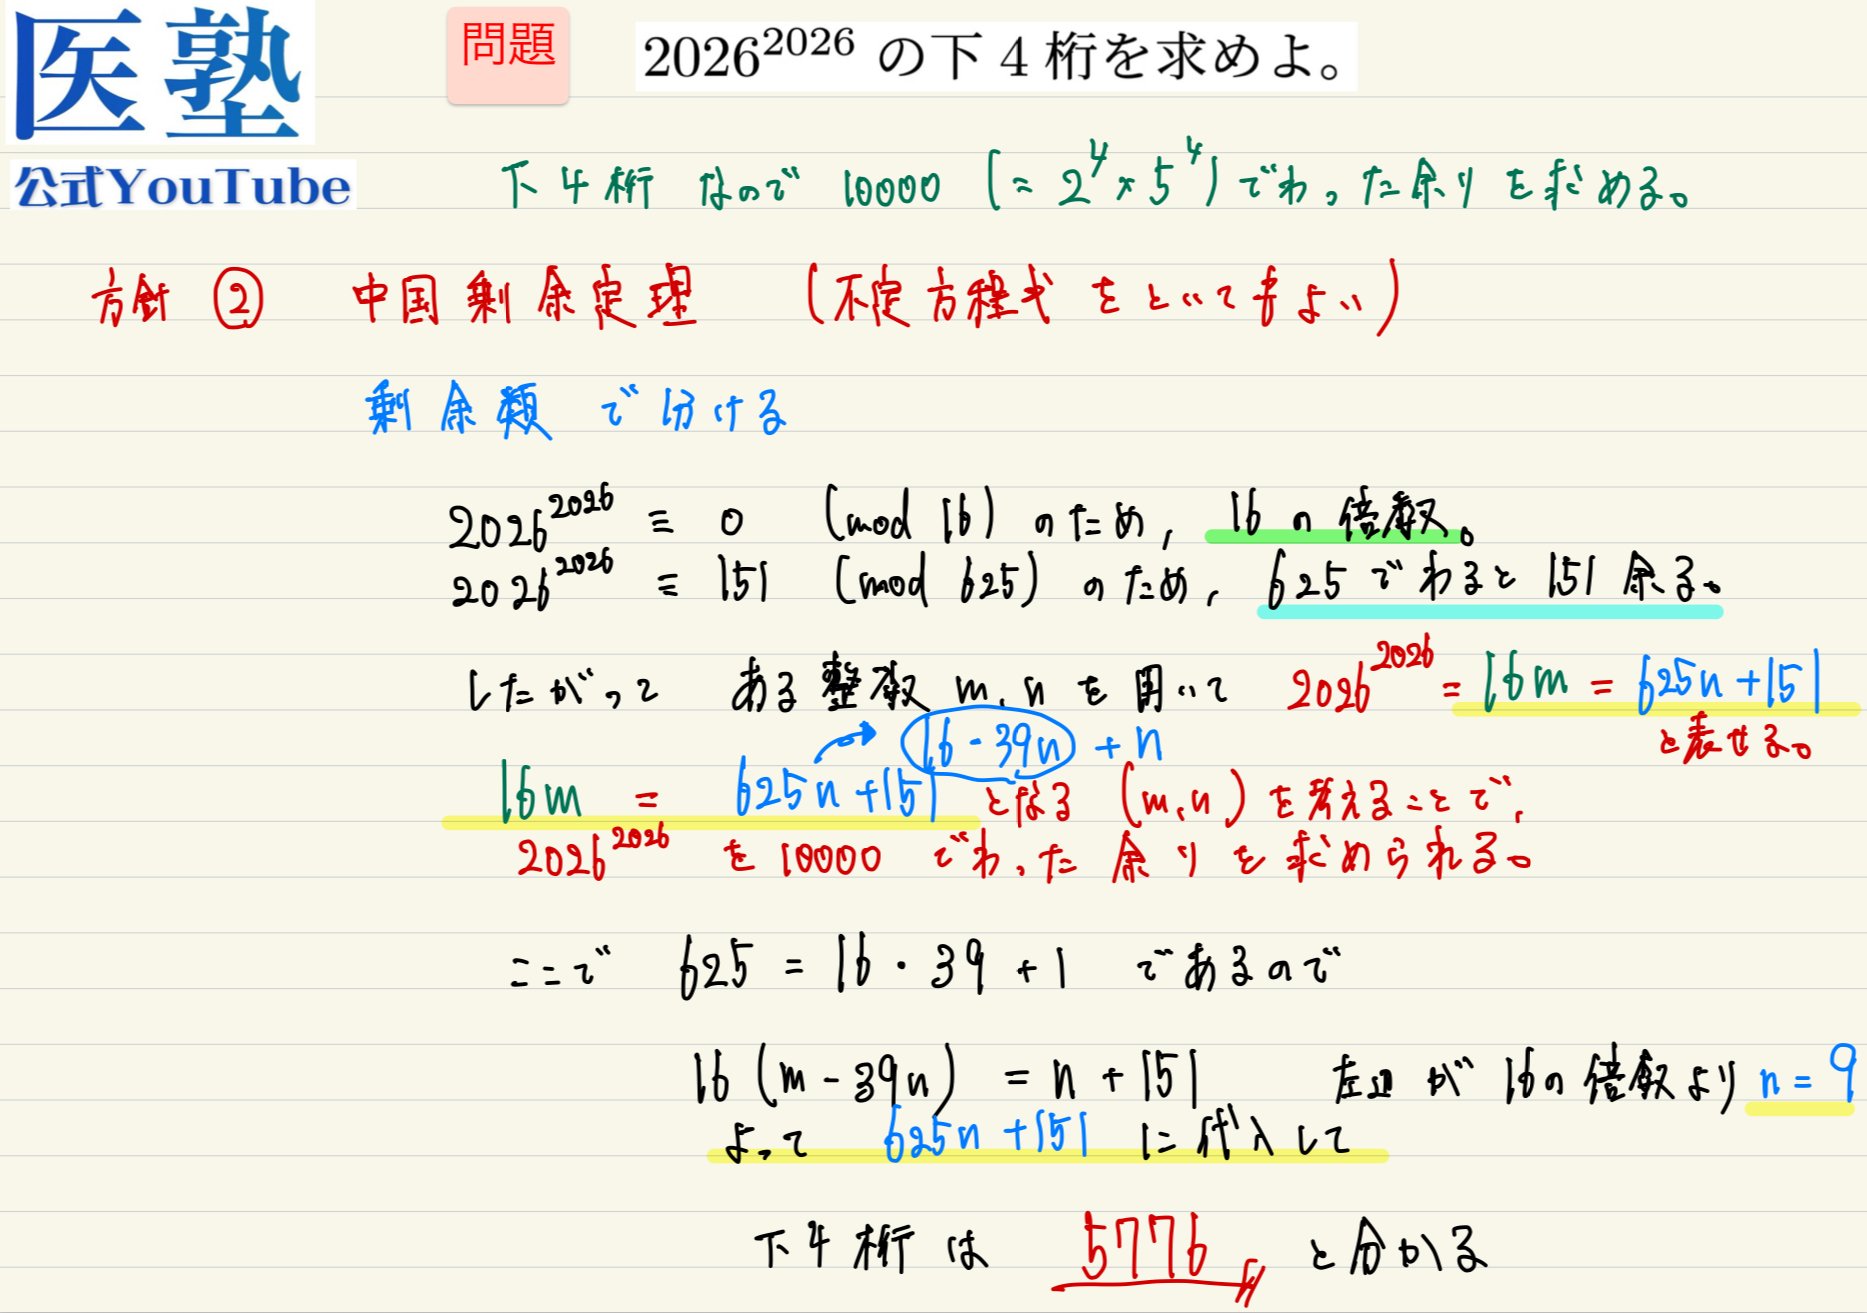 医塾
公式YouTube
問題
2026^2026 の下 4 桁を求めよ。
下4桁 なので 10000 (= 2^4 × 5^4) でわった余りを求める。
方針 ② 中国剰余定理 (不定方程式をといてもよい)
剰余類 で分ける
2026^2026 ≡ 0 (mod 16) のため, 16 の 倍数。
2026^2026 ≡ 151 (mod 625) のため, 625 でわると 151 余る。
したがって ある整数 m, n を用いて 2026^2026 = 16m = 625n + 151
と表せる。
16・39n + n
16m = 625n + 151 となる (m, n) を考えることで,
2026^2026 を 10000 でわった 余り を 求められる。
ここで 625 = 16・39 + 1 であるので
16 (m - 39n) = n + 151 左辺 が 16の倍数より n = 9
よって 625n + 151 に代入して
下4桁 は 5776 と分かる